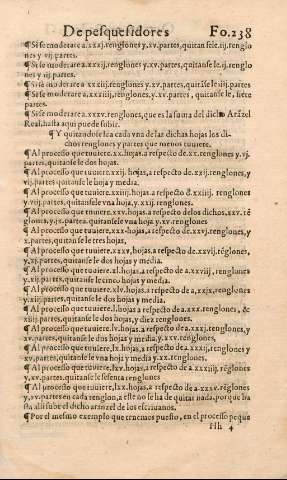 De pesquesidores Fo.238
¶ Si se moderare a.xxxj.renglones y.xv.partes, quitanse le.ij.renglo
nes y vij.partes.
¶ Si se moderare a.xxxij.renglones y.xv.partes,quitanse le.iij.renglo
nes y partes.
¶ Si se moderare a.xxxiij.renglones y.xv.partes, quitanse le.iiij.partes
¶ Si se moderare a.xxxiiij.renglones y.xv.partes, quitanse le, siete
partes.
¶ Si se moderare a.xxxv.renglones,que es la suma del dicho Aranzel
Real.hasta aqui puede subir.
¶ Y quitandose le a cada vna de las dichas hojas los di-
chos renglones y partes que menos tuuiere.
¶ Al processo que tuuiere.xx.hojas.a respecto de.xx.renglones y vij.
partes,quitanse le dos hojas.
¶ Al processo que tuuiere.xxij.hojas, a respecto de.xxij.renglones, y
vij.partes quitanse le hoja y media.
¶ Al processo que tuuiere.xxiij.hojas, a respecto de.xxiij. renglones
y.xiij.partes, quitanse le vna hoja.y.xxij.renglones
¶ Al processo que tuuiere.xxv.hojas,a respecto de los dichos.xxv.rē
glones,y.ix.partes.quitanse le vna hoja y.xx.renglones
¶ Al processo que tuuiere.xxx.hojas,a respecto de.xxv.renglones,y
x.partes,quitanse le tres hojas.
¶ Al processo que tuuiere.xxxv,hojas,a respecto de.xxvij.rēglones,
y.xij.partes,quitanse le dos hojas y media.
¶ Al processo que tuuiere.xl.hojas,a respecto de a.xxviij,renglones,
y.xij.partes,quitanse le cinco hojas y media.
¶ Al processo que tuuiere.xlv.hojas,a respecto de a.xxix,renglones,
y xiij.partes,quitanse le dos hojas y media.
¶ Al processo que tuuiere.l.hojas a respecto de a.xxx.renglones, &
xiiij.partes,quitanse le dos hojas,y diez renglones.
¶ Al processo que tuuiere.lv.hojas.a respecto de a.xxxj.renglones,y
xv.partes,quitanse le dos hojas y media,y.xxv.renglones,
¶ Al processo que tuuiere.lx.hojas.a respecto de a.xxxij,renglones y
xv.partes,quitanse le vna hoja y media y.xx.renglones.
¶ Al processo que tuuiere.lxv.hojas, a respecto de a.xxxiiij.rēglones
y.xv.partes,quitanse le sesenta renglones
¶ Al processo que tuuiere,lxx,hojas,a respecto de a.xxxv.rēglones,
y.xv.partes en cada renglon,a este no se ha de quitar nada,porque ha
sta alli sube el dicho aranzel de los escriuanos.
¶ Por el mesmo exemplo que tenemos puesto, en el processo peque
Hh 4